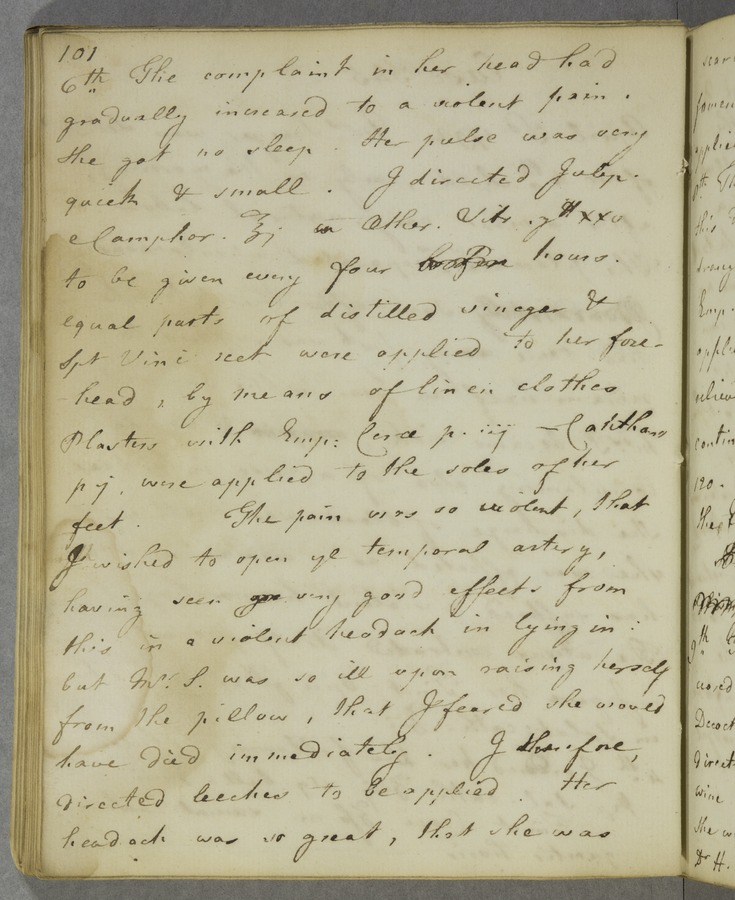 101
6th The complaint in her head had
gradually increased to a violent pain.
She got no sleep. Her pulse was very
quick & small. I directed Julep.
e Camphor. ℥j Æther. Vitr. gtt xxv
to be given every four hours.
equal parts of distilled vinegar &
Spt Vini rect were applied to her fore-
head, by means of linen clothes
Plasters with Emp: Ceræ p. iij – Canthar
p j, were applied to the soles of her
feet. The pain was so violent, that
I wished to open ye temporal artery,
having seen very good effects from
this in a violent headach in lying in:
but Mrs S. was so ill upon raising herself
from the pillow, that I feared she would
have died immediately. I therefore,
directed leeches to be applied. Her
headach was so great, that she was